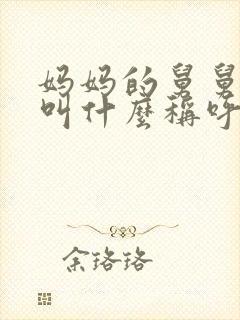 妈妈的舅舅
叫什麼稱呼
余珞珞